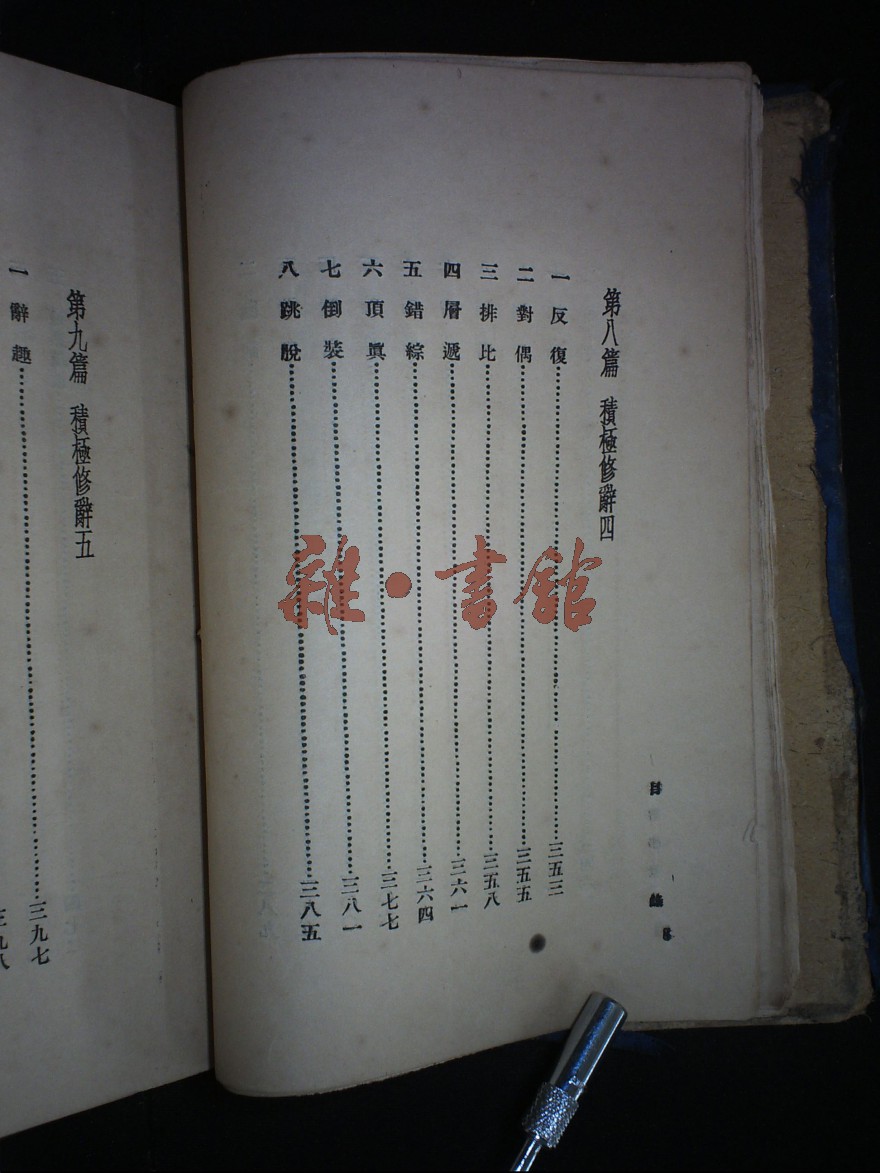 第八篇 積極修辭四
一 反復⋯⋯三五三
二 對偶⋯⋯三五五
三 排比⋯⋯三五八
四 層遞⋯⋯三六一
五 錯綜⋯⋯三六四
六 頂眞⋯⋯三七七
七 倒裝⋯⋯三八一
八 跳脫⋯⋯三八五
第九篇 積極修辭五
一 辭趣⋯⋯三九七
三九八
雜·書館